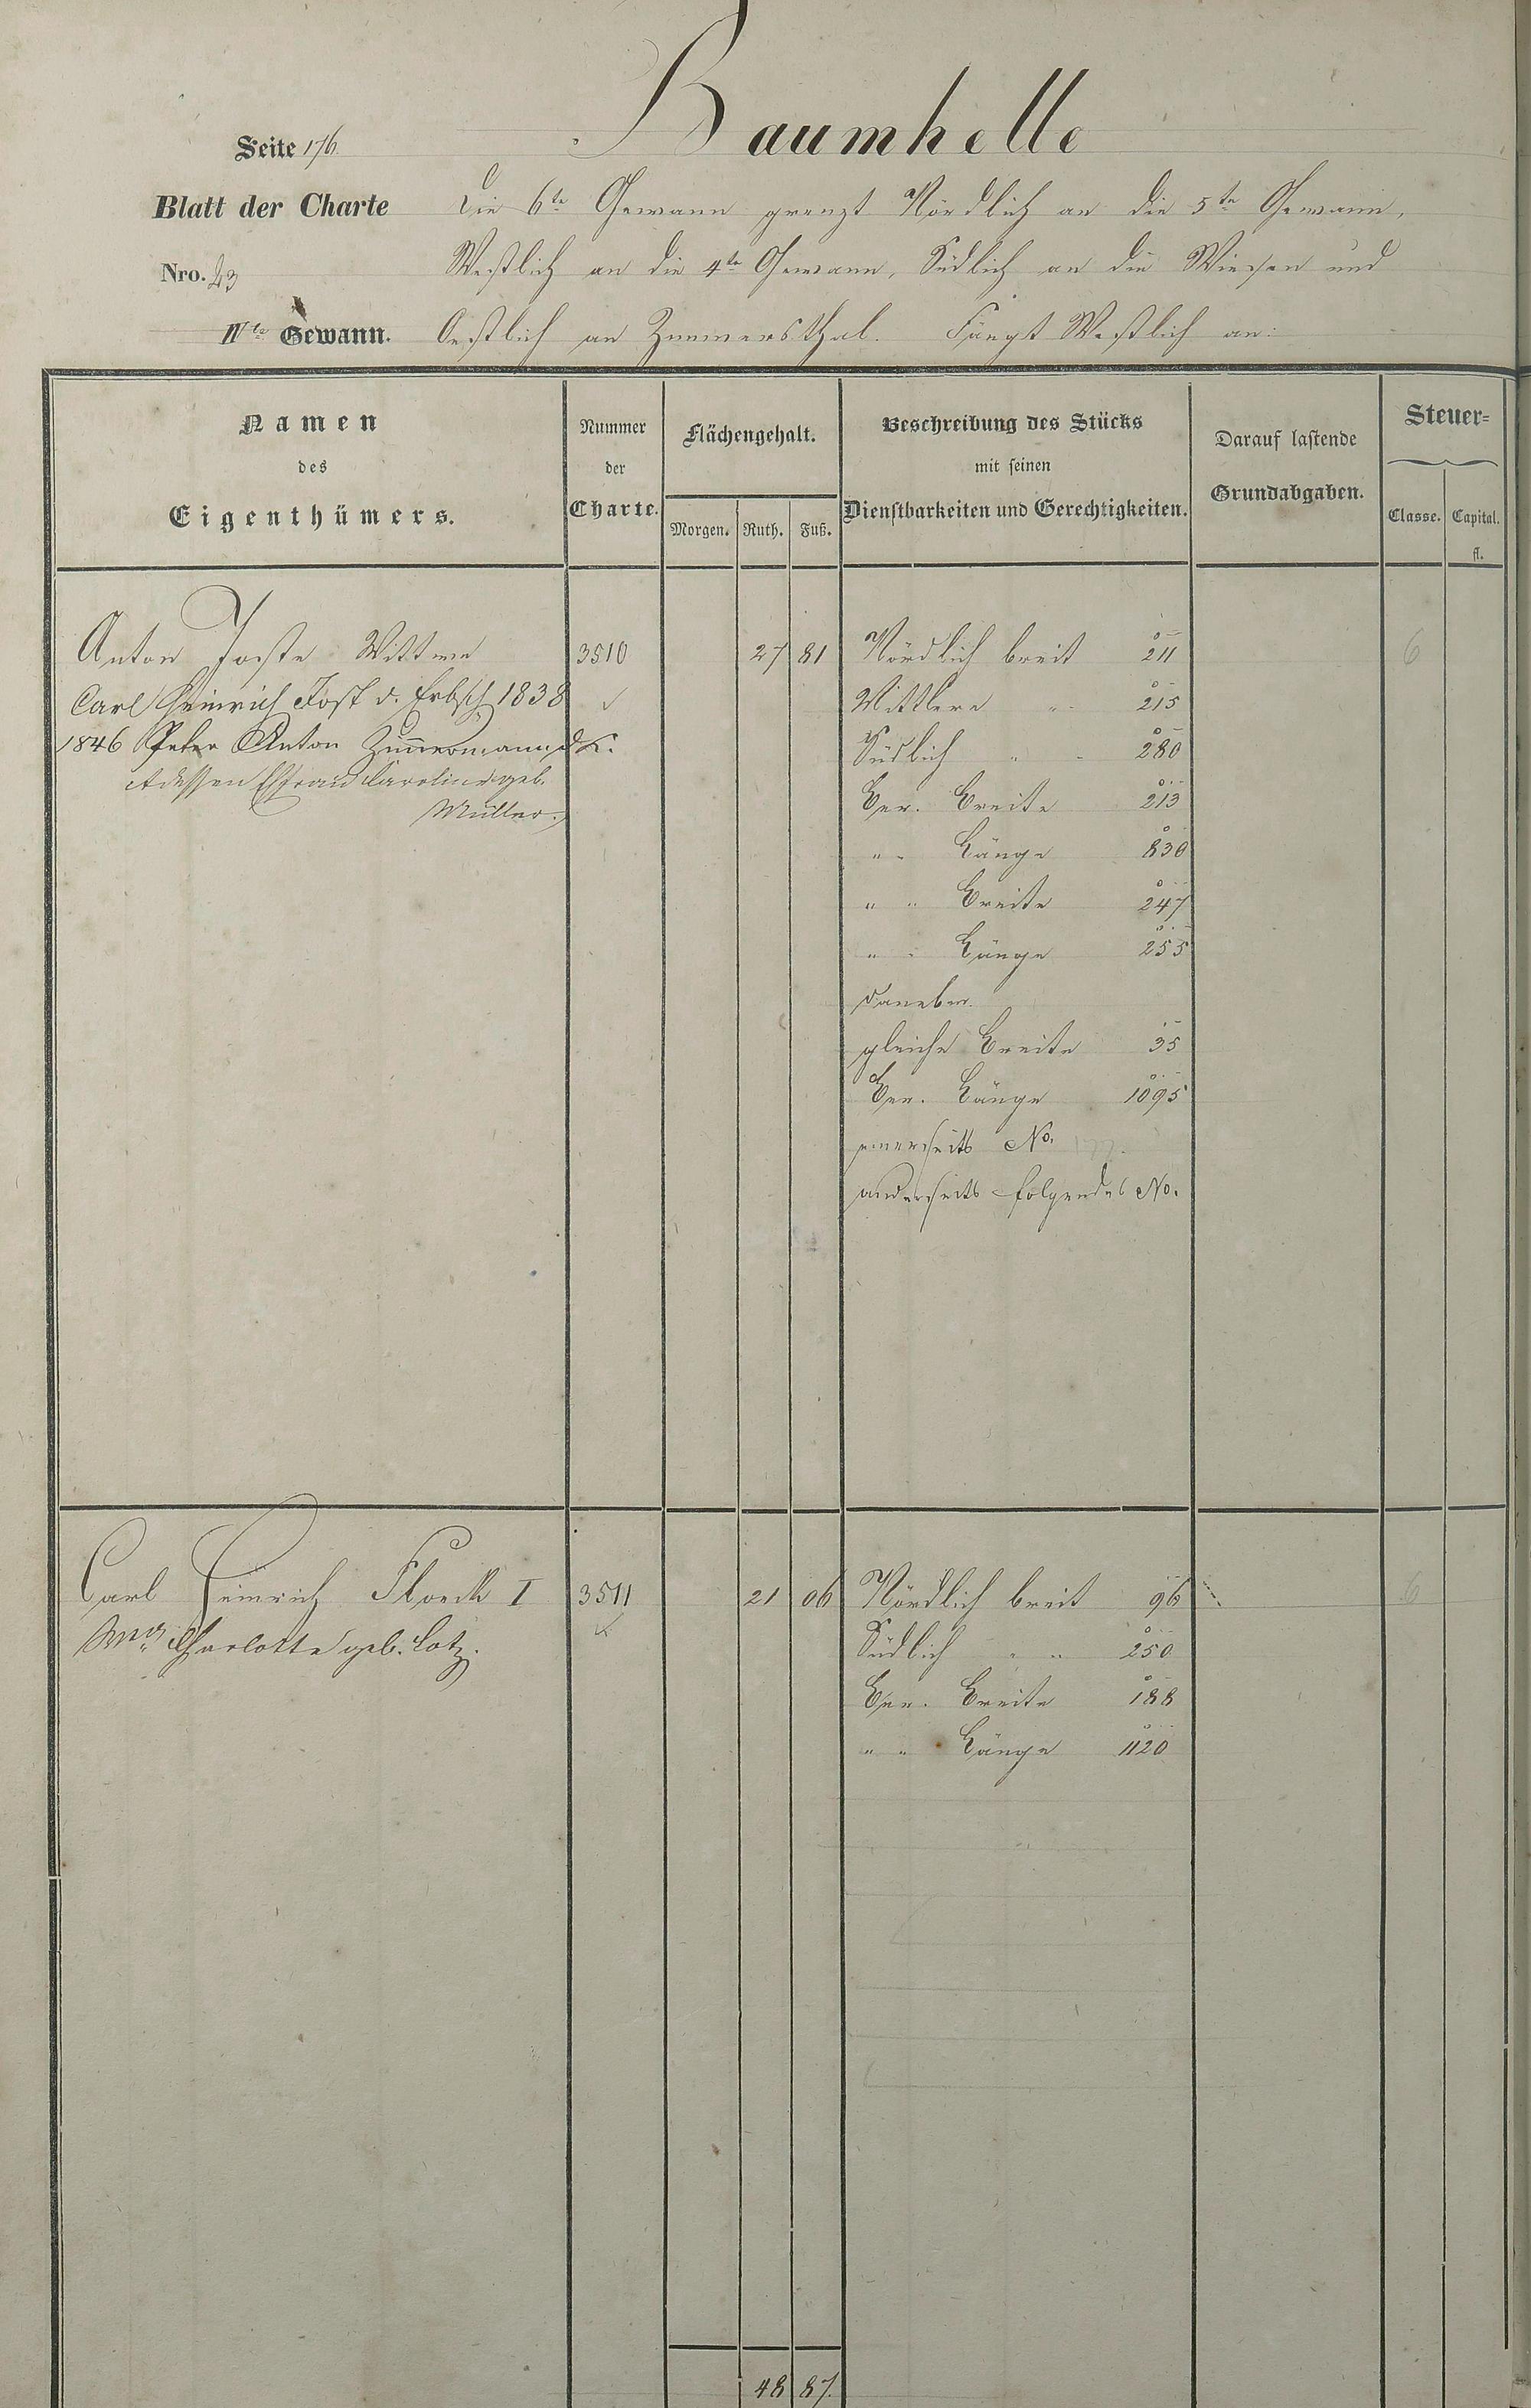 Baumhelle
Seite 176.
Blatt der Charte
Die 6te Gewann grenzt Nördlich an die 5te Gewann,
Nro. 23
Westlich an die 4te Gewann, Südlich an die Wiesen und
Gewann.
Oestlich an Zimmersthal. Fängt Westlich an:
Namen
des
Eigenthümers.
Nummer
der
Charte.
Flächengehalt.
Morgen. Ruth. Fuß.
Beschreibung des Stücks
mit seinen
Dienstbarkeiten und Gerechtigkeiten.
Darauf lastende
Grundabgaben.
Steuer-
Classe. Capital.
fl.
Anton Josts Wittwe 3510 27 81 Nördlich breit 211 6
Carl Heinrich Jost d. Erbsch. 1838
Mittlere " 215
1846 Peter Anton Zimmermann d. K.
Südlich " 280
dessen Ehfrau Caroline geb.
Müller.
Ver. Breite 213
" Länge 830
" " Breite 247
" " Länge 255
daneben
gleiche Breite 35
Ver. Länge 1095
einerseits No.
anderseits folgendes No.
Carl Heinrich Floeck I 3511 21 06 Nördlich breit 96 6
Charlotte geb. Lotz.
Südlich " " 250
Ver. Breite 188
" " Länge 1120
48 87.